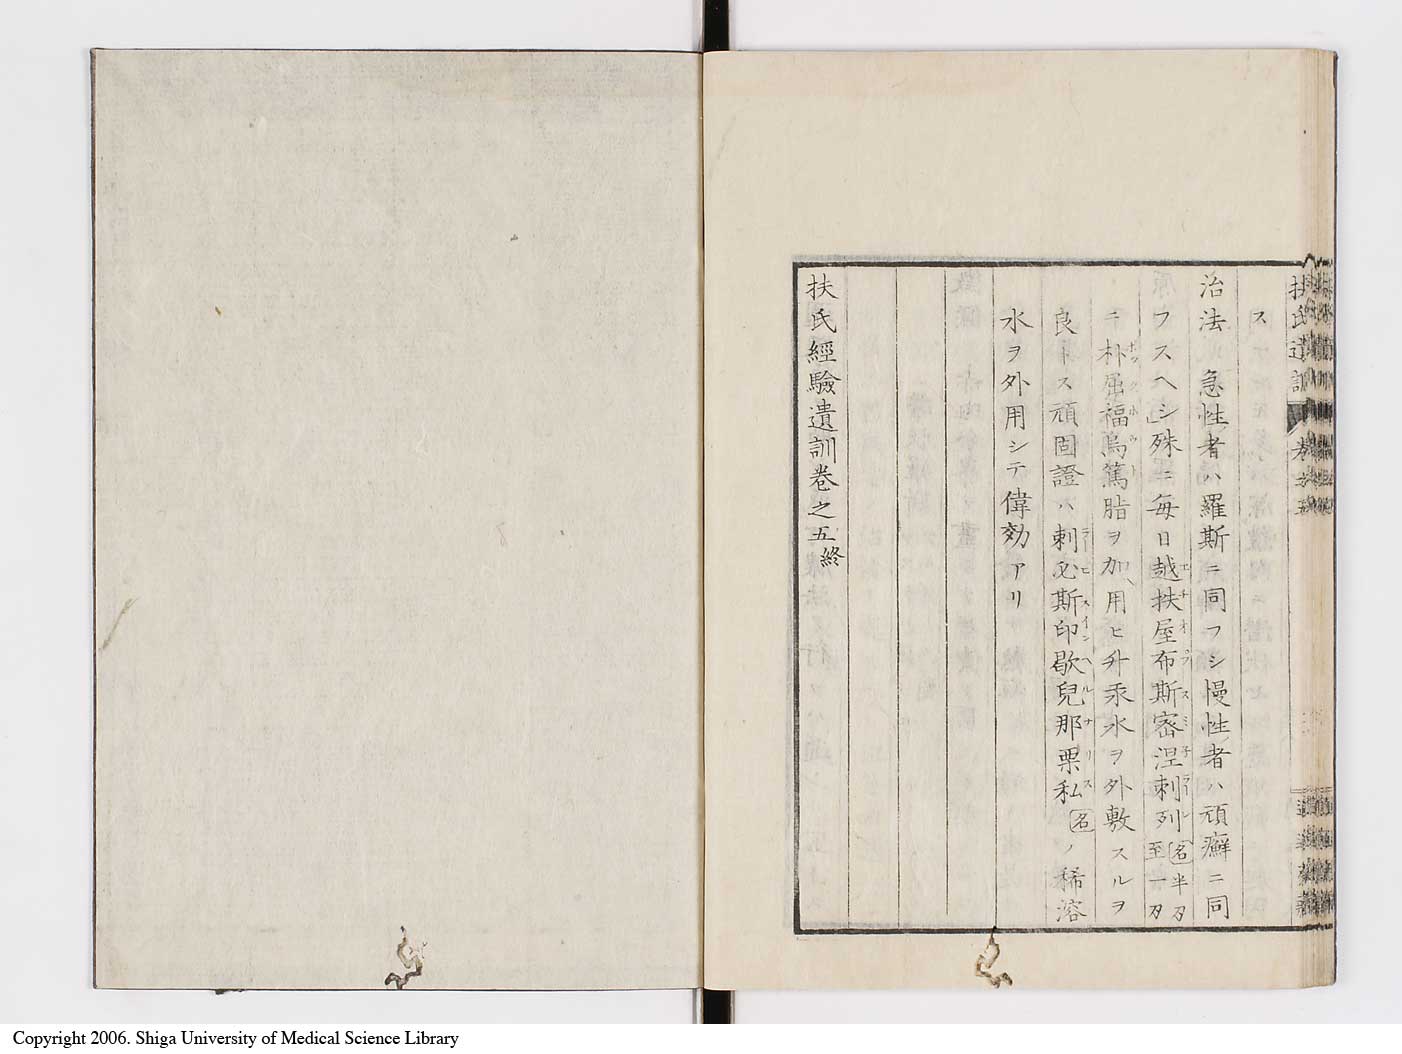 ス
治法 急性者ハ羅斯ニ同フシ慢性者ハ頑癬ニ同
フスヘシ殊ニ毎日越扶屋布斯密涅刺列名半刄至一刄
ニ朴屈福烏篤脂ヲ加用ヒ升汞水ヲ外敷スルヲ
良トス頑固證ハ刺必斯印歇兒那栗私名ノ稀溶
水ヲ外用シテ偉効アリ
扶氏經驗遺訓卷之五終
扶氏遺訓 卷之五
Copyright 2006. Shiga University of Medical Science Library